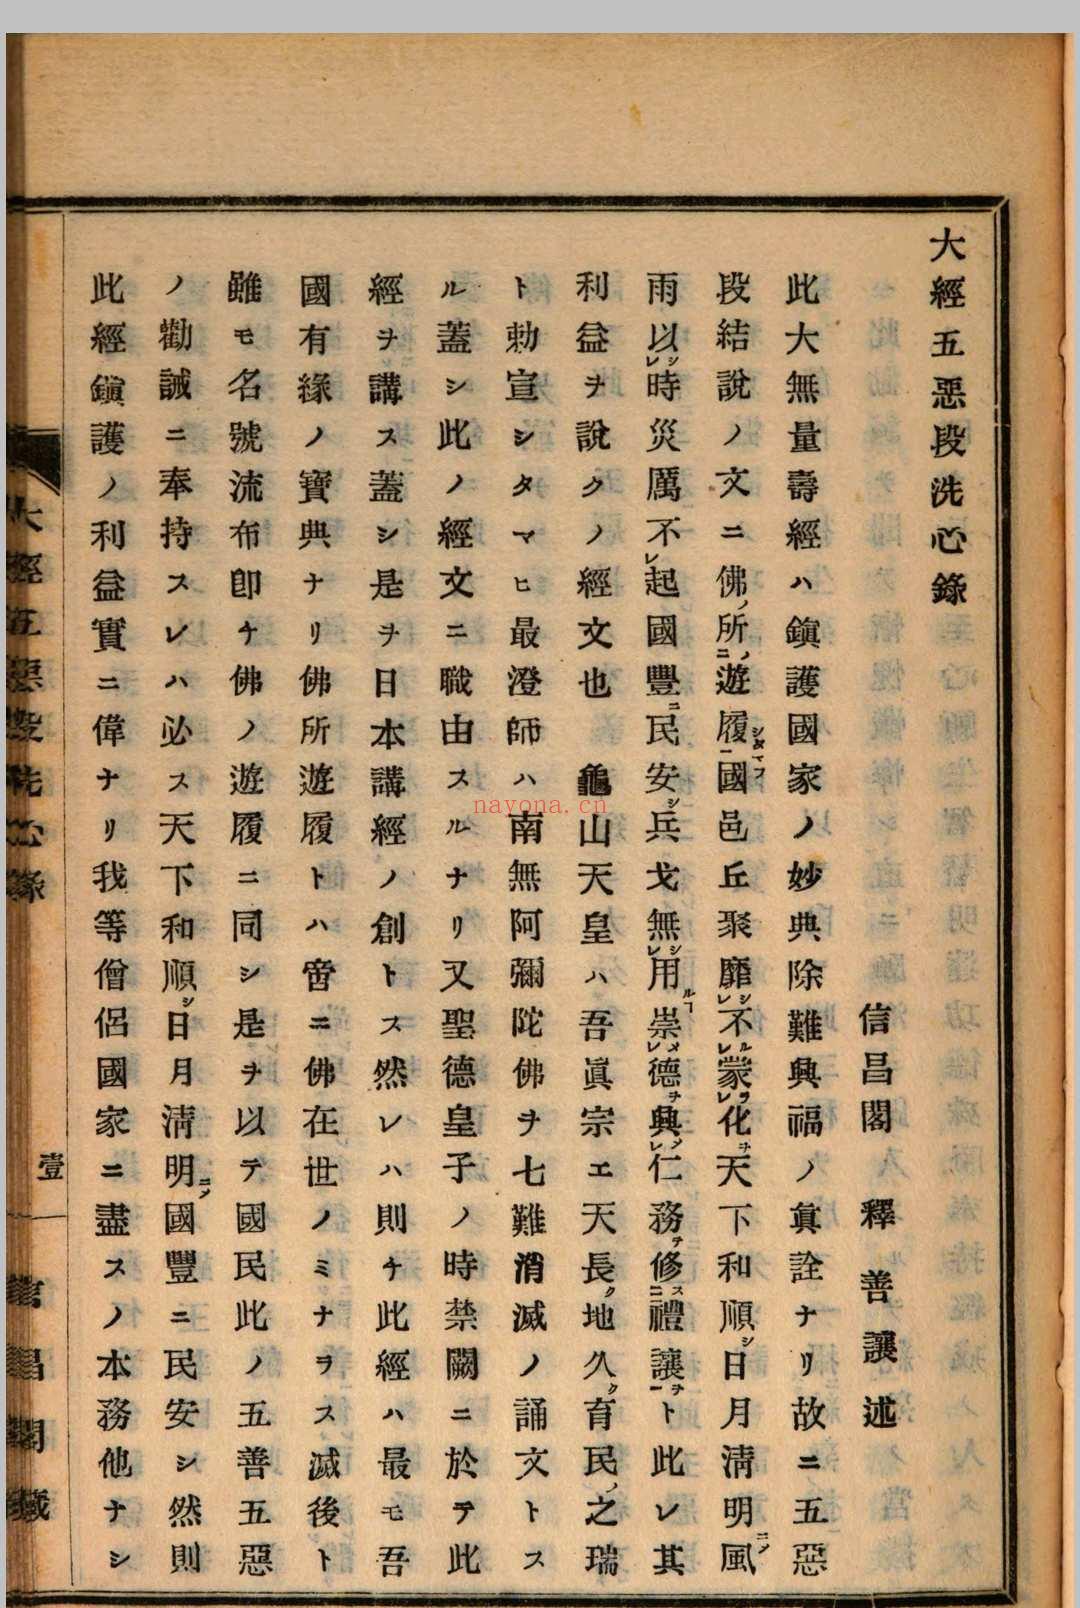 大經五惡段洗心錄
信昌閣　釋善讓述
此大無量壽經ハ鎭護國家ノ妙典除難興福ノ眞詮ナリ故ニ五惡
段結說ノ文ニ佛ノ所ノ二遊履シタマフ一國邑丘聚靡シレ不ルレ蒙ラレ化ヲ天下和順シ日月淸明ニノ風
雨以シレ時災厲不レ起國豐ニ民安シ兵戈無シレ用ルコ崇メレ德ヲ興ノレ仁務ヲ修ス二禮讓ヲ一ト此レ其
利益ヲ說クノ經文也　龜山天皇ハ吾眞宗エ天長ク地久ク育民ノ之瑞
ト勅宣シタマヒ最澄師ハ南無阿彌陀佛ヲ七難消滅ノ誦文トス
ル蓋シ此ノ經文ニ職由スルナリ又聖德皇子ノ時禁闕ニ於テ此
經ヲ講ス蓋シ是ヲ日本講經ノ創トス然レハ則チ此經ハ最モ吾
國有緣ノ寶典ナリ佛所遊履トハ啻ニ佛在世ノミナラス滅後ト
雖モ名號流布卽チ佛ノ遊履ニ同シ是ヲ以テ國民此ノ五善五惡
ノ勸誡ニ奉持スレハ必ス天下和順シ日月淸明ニノ國豐ニ民安シ然則
此經鎭護ノ利益實ニ偉ナリ我等僧侶國家ニ盡スノ本務他ナシ
大經五惡段洗心錄
壹
信昌閣藏
nayona.cn